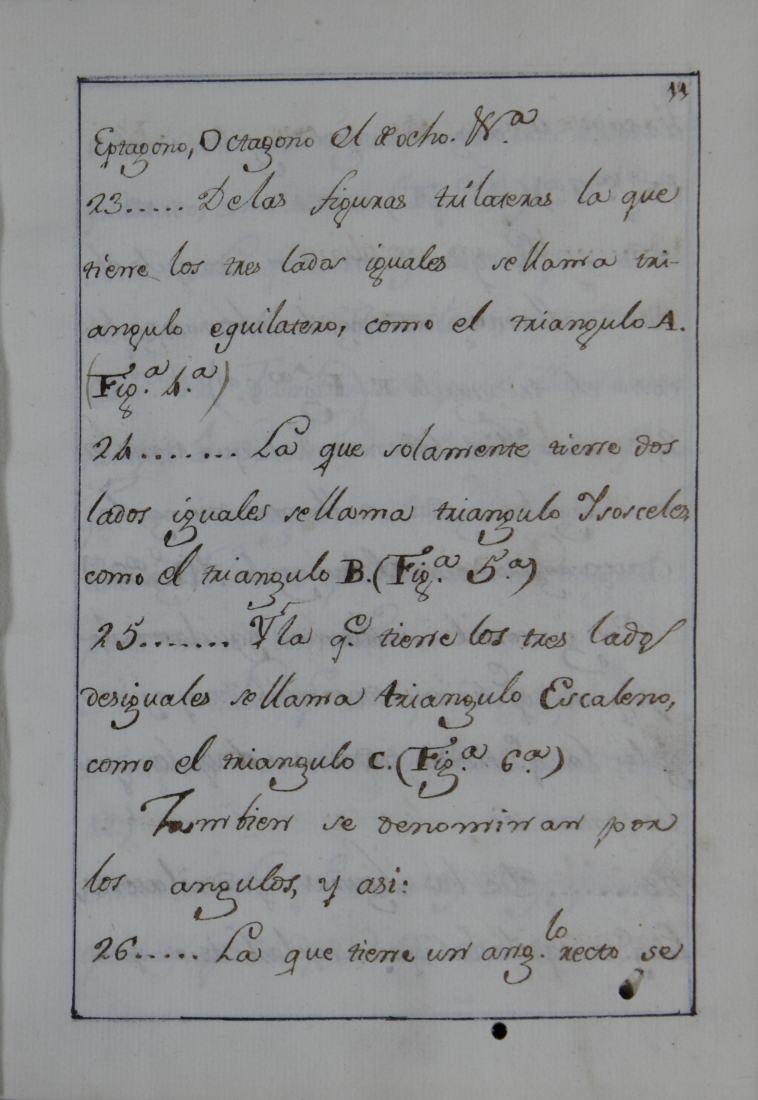 11
Eptagono, Octagono el de ocho. &.ª
23..... De las figuras trilateras la que
tiene los tres lados iguales se llama tri-
angulo equilatero, como el triangulo A.
(Fig.ª 4.ª)
24....... La que solamente tiene dos
lados iguales se llama triangulo Ysosceles,
como el triangulo B. (Fig.ª 5.ª)
25....... Y la q.e tiene los tres lados
desiguales se llama triangulo Escaleno,
como el triangulo C. (Fig.ª 6.ª)
Tambien se denominan por
los angulos, y asi:
26..... La que tiene un ang.lo recto se